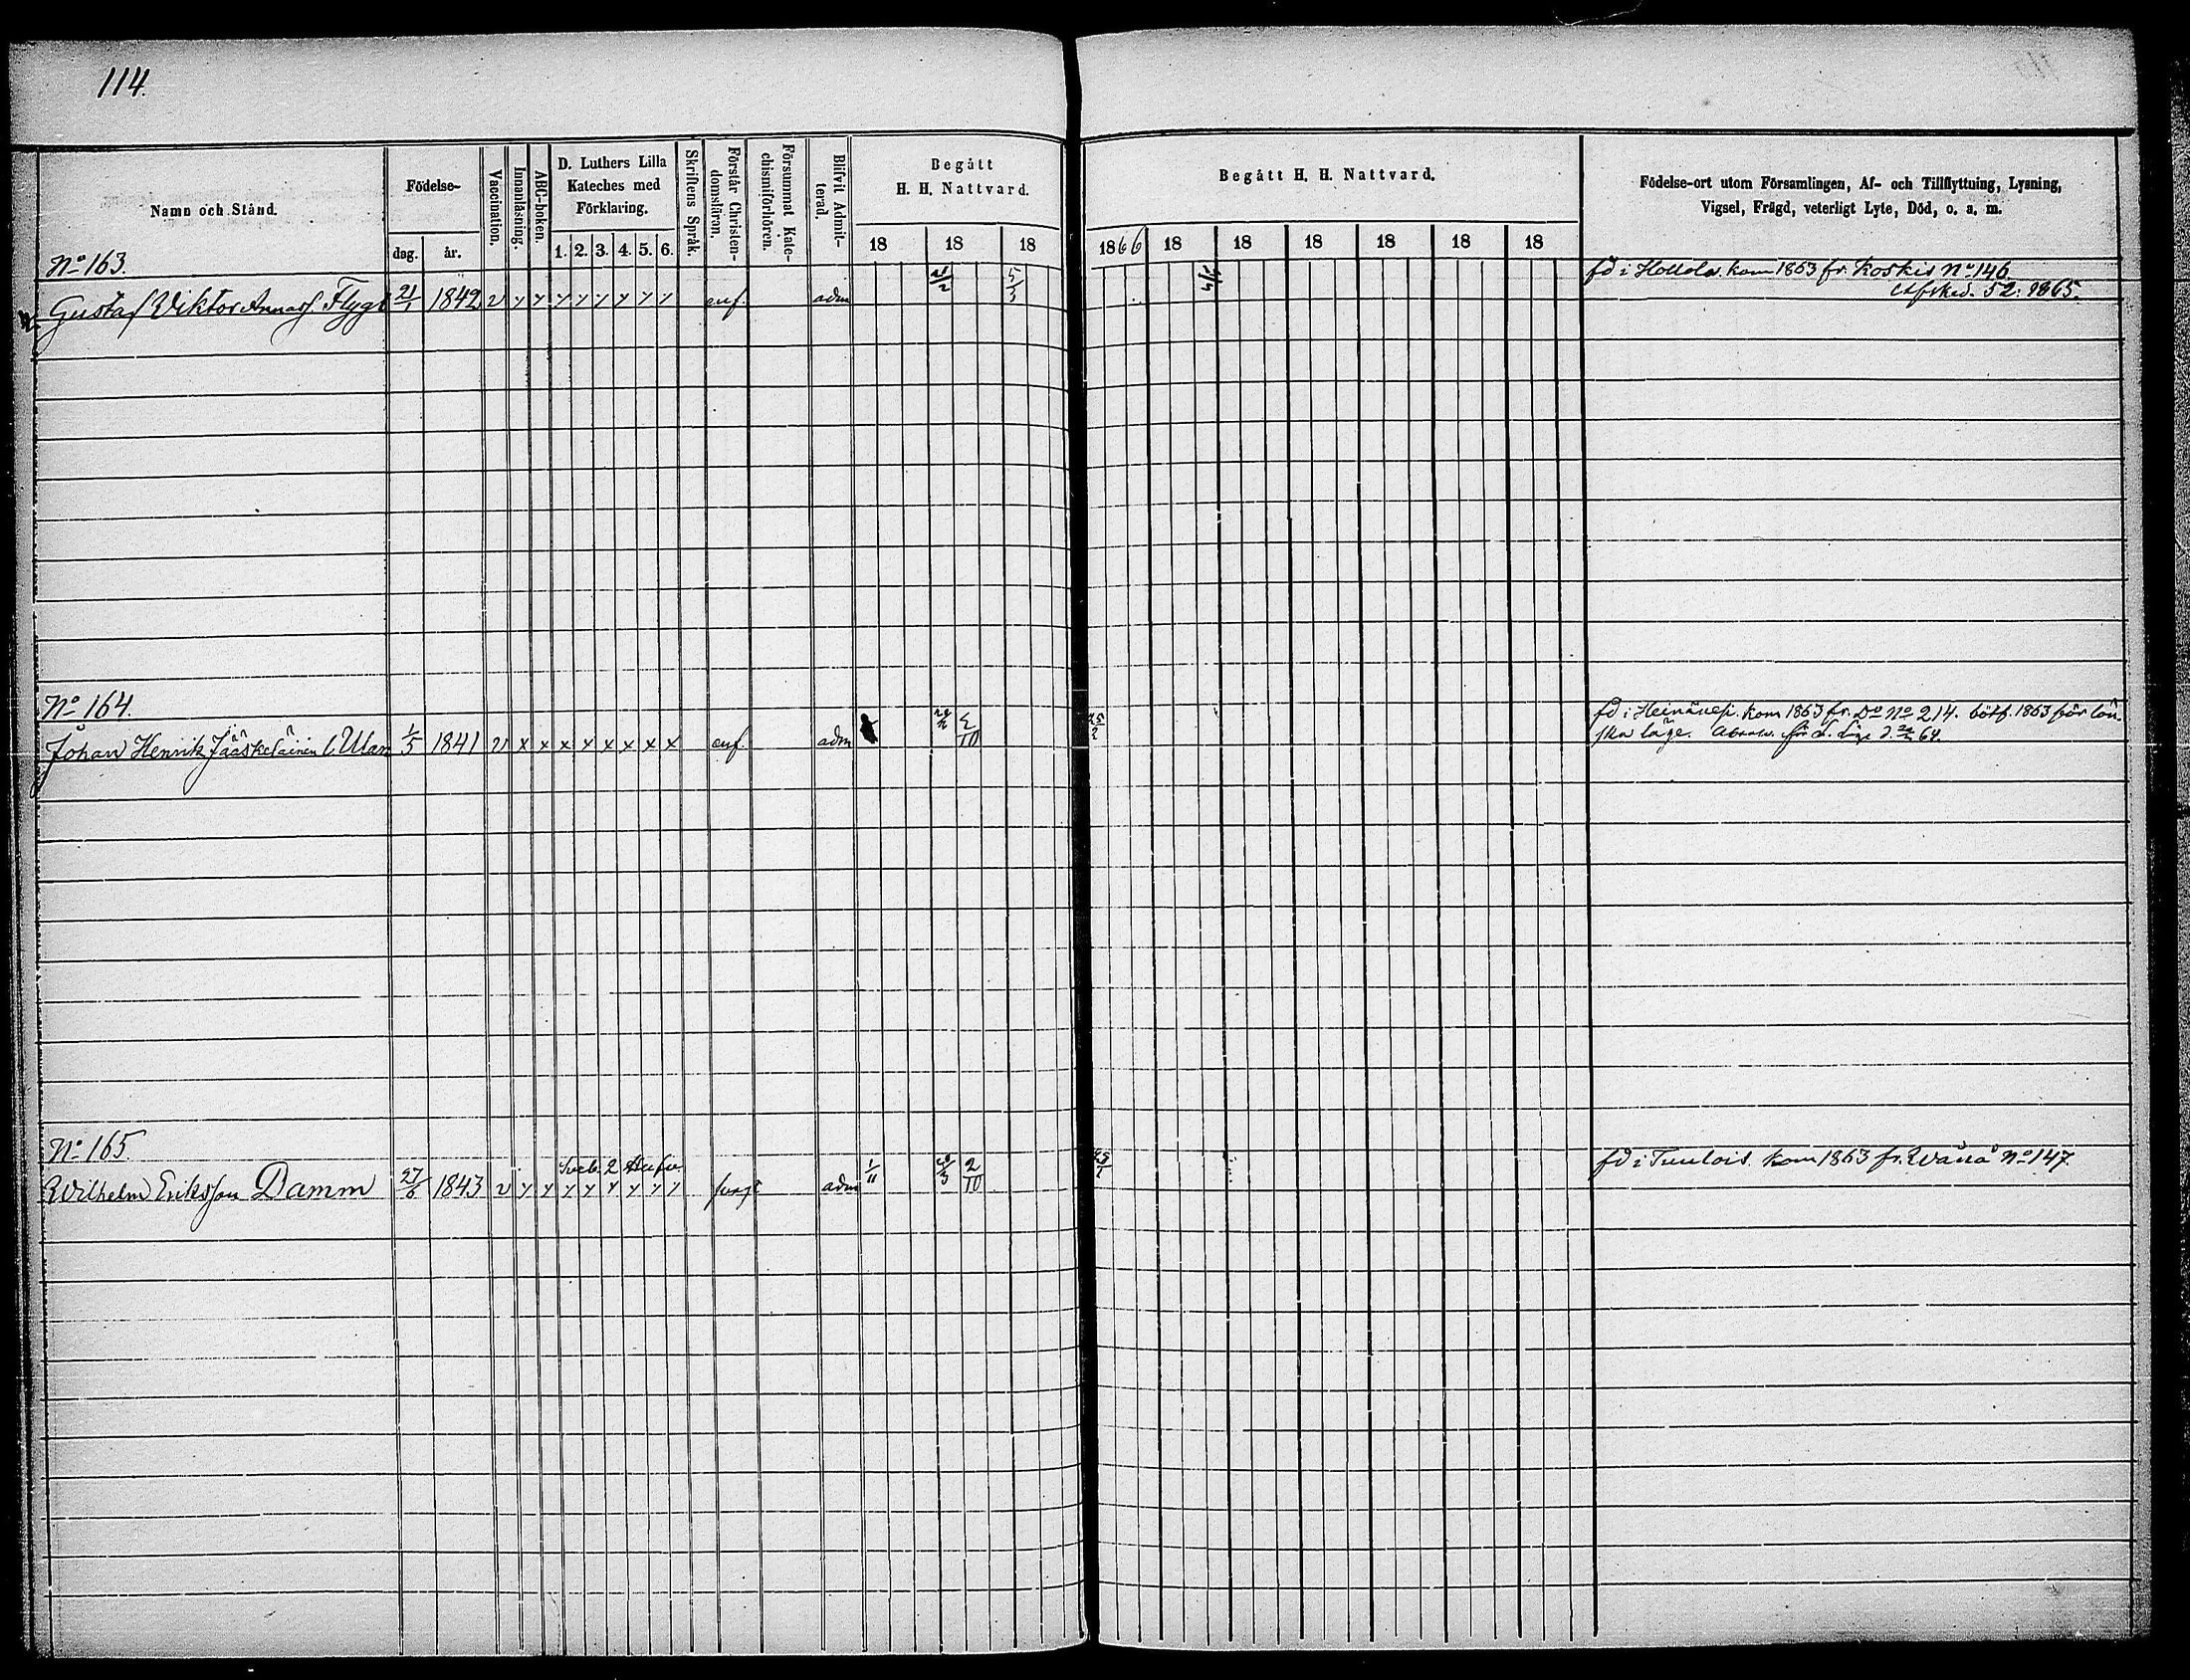 114.
Namn och Stånd.
Födelse-
dag. år.
Vaccination.
Innanläsning.
ABC-boken.
D. Luthers Lilla
Kateches med
Förklaring.
1. 2. 3. 4. 5. 6.
Skriftens Språk.
Förstår Christen-
domsläran.
Försummat Kate-
chismiförhören.
Blifvit Admit-
terad.
Begått
H. H. Nattvard.
18 18 18
Begått H. H. Nattvard.
1866 18 18 18 18 18 18
Födelse-ort utom Församlingen, Af- och Tillflyttning, Lysning,
Vigsel, Frägd, veterligt Lyte, Död, o. a. m.
No 163.
Gustaf Viktor Annasf. Flygt 21/1 1842 v y y y y y y y y enf. adm 5/3
fd i Hollola. kom 1863 fr. Koskis No 146
Afsked. 52. 1865.
No 164.
Johan Henrik Jääskeläinen Ulan 1/5 1841 v x x x x x x x x enf. adm 2/10 25/2
fd i Heinävesi. kom 1863 fr. Do No 214. bötf. 1863 för lön-
ska läge. 64.
No 165.
Wilhelm Eriksson Damm 27/6 1843 v y y y y y y y y adm 1/11 2/10
fd i Tuulois. kom 1863 fr. Wånå No 147.